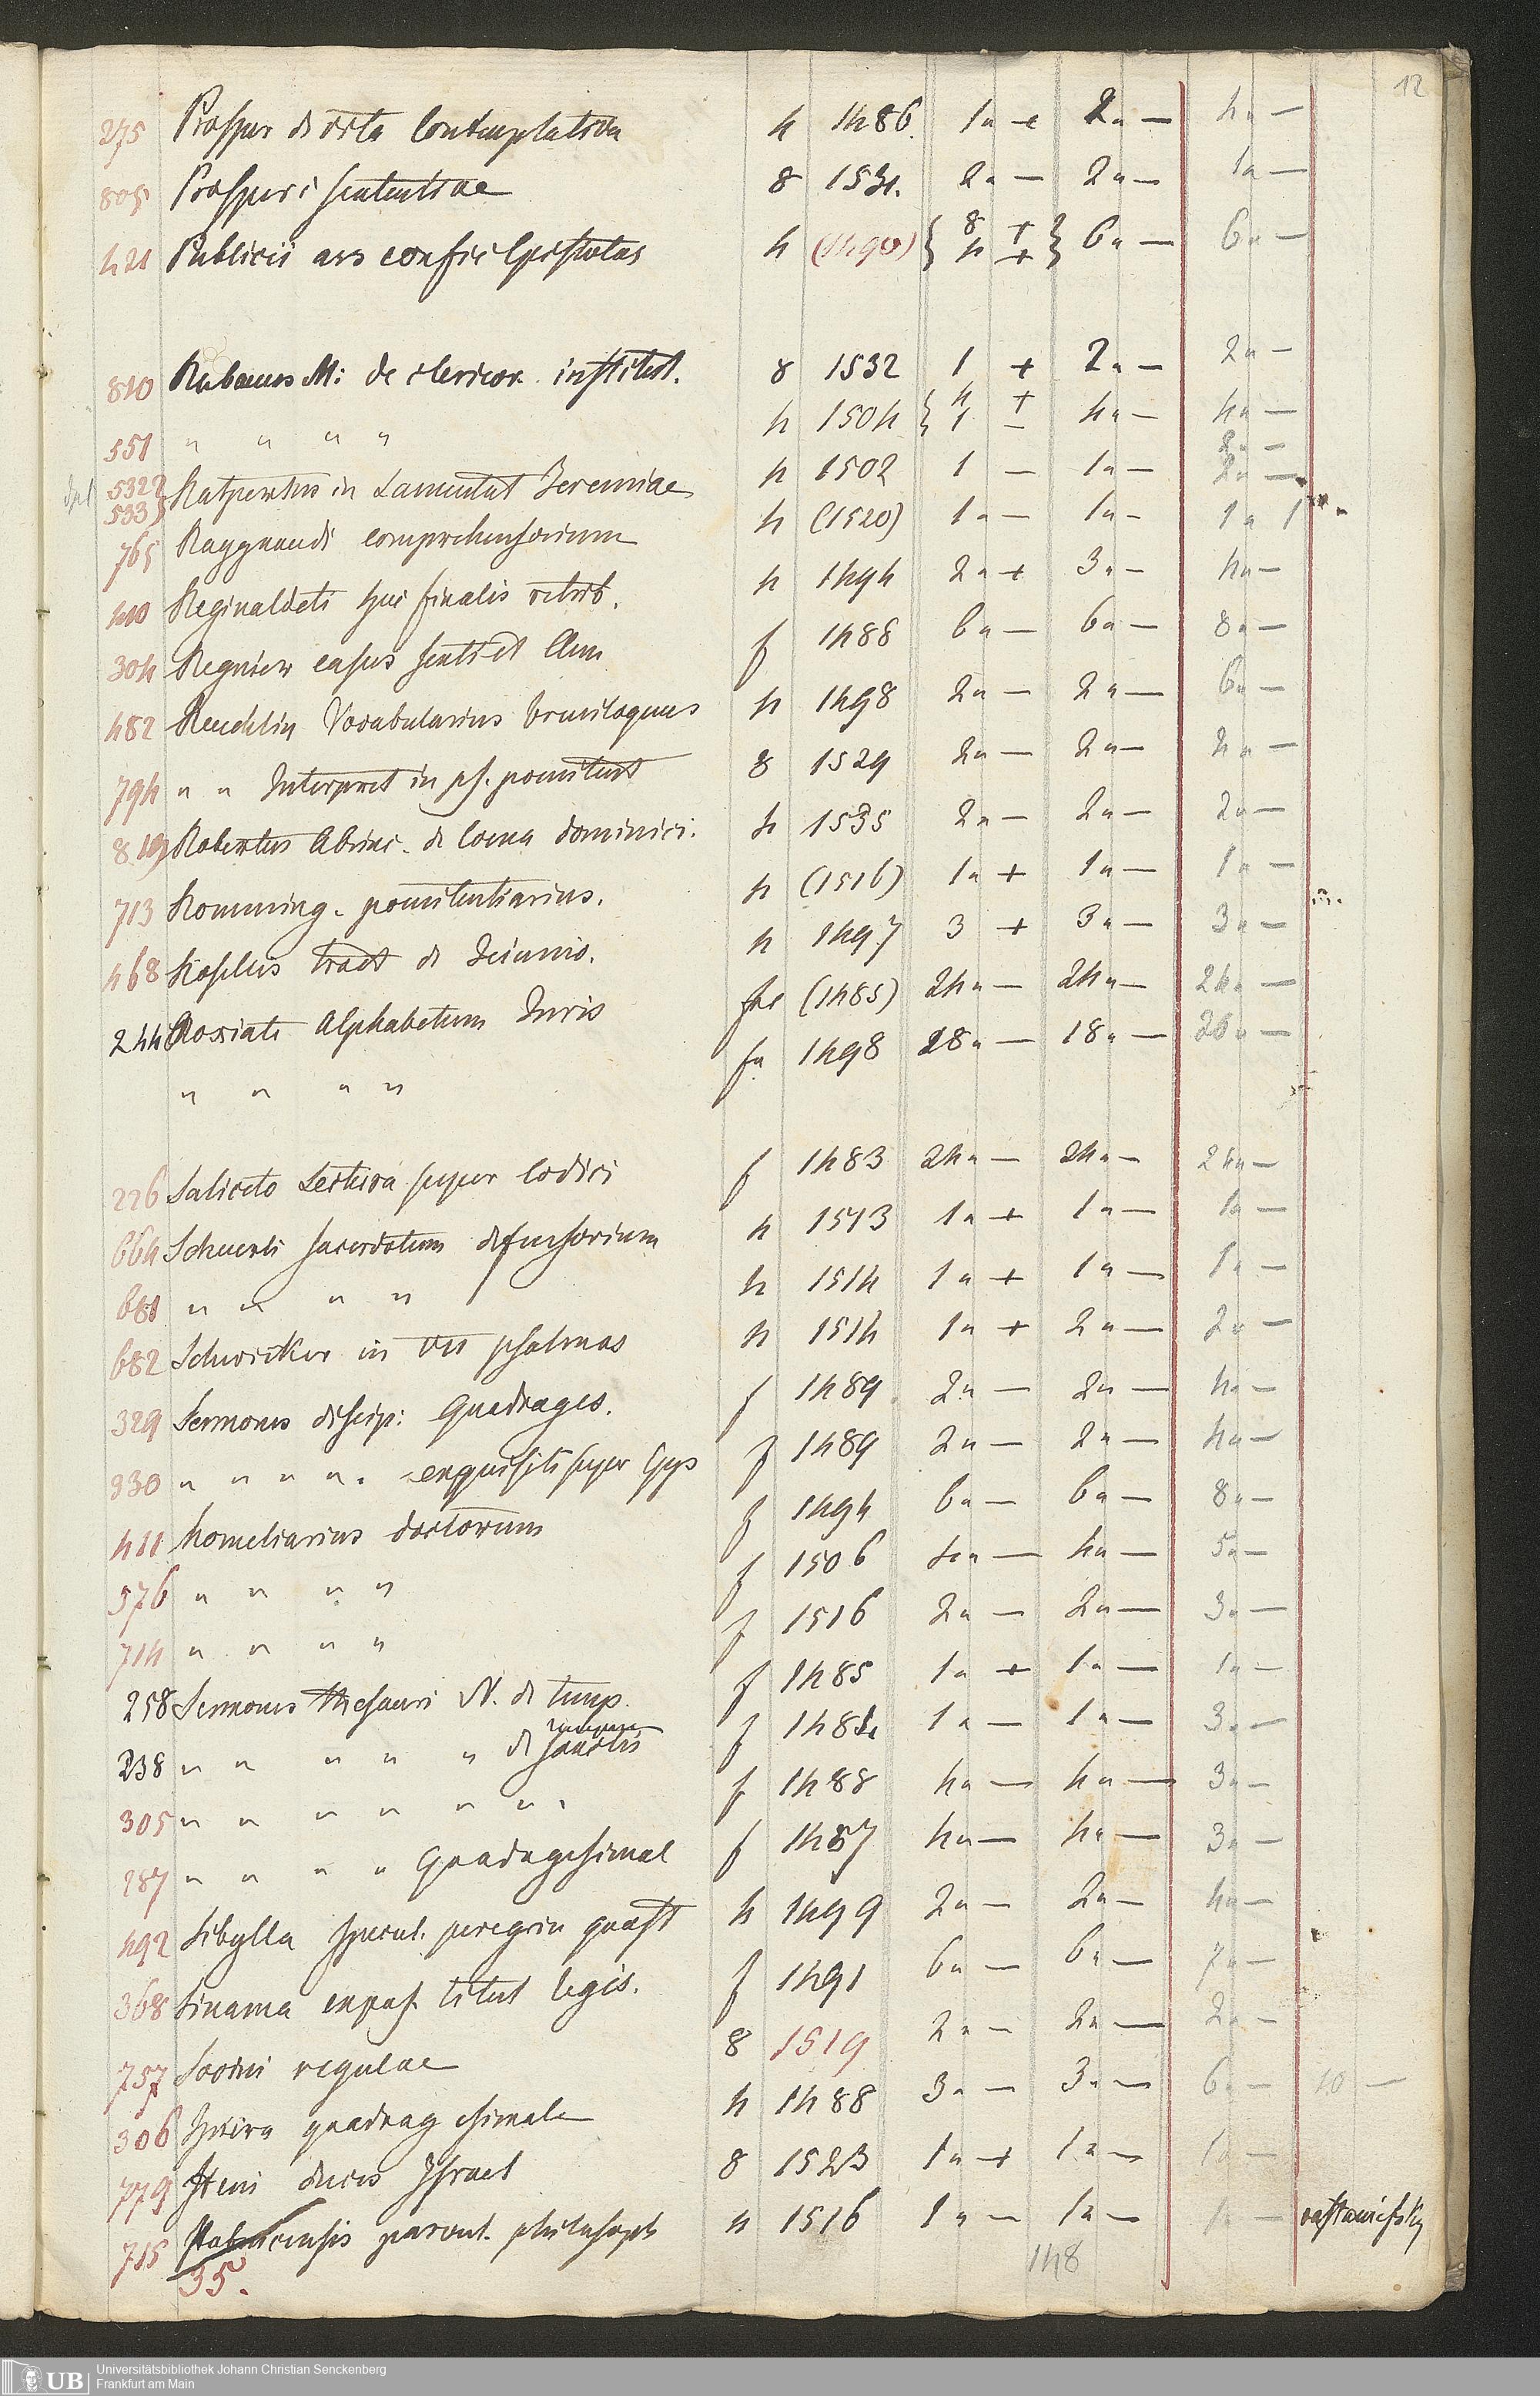 12
275 Prosper de vita Contemplativa 4 1486. 1 „ – 2 „ – 4 „ –
805 Prosperi sententiae 8 1531. 2 „ – 2 „ – 1 „ –
421 Publicii ars confic Epistolas 4 (1490) { 8 + 4 + } 6 „ – 6 „ –
810 Rabanus M: de clericor. institut. 8 1532 1 + 2 „ – 2 „ –
551 „ „ „ „ 4 1504 { 4 + 1 – 4 „ – 4 „ –
532 533 } Ratpertus in Lamentat Jeremiae 4 1502 1 – 1 „ – 2 „ –
765 Raygnandi comprehensorium 4 (1520) 1 „ – 1 „ – 1 „
410 Reginaldeti spec finalis retrib. 4 1494 2 „ + 3 „ – 4 „ –
304 Regnier casus sexti et Clem f 1488 6 „ – 6 „ – 8 „ –
482 Reuchlin Vocabularius breviloquus 4 1498 2 „ – 2 „ – 6 „ –
794 „ „ Interpret in ps. poenitent 8 1529 2 „ – 2 „ – 2 „ –
819 Robertus Abrinc. de Coena dominici. 4 1535 2 „ – 2 „ – 2 „ –
713 Romming. penitentiarius. 4 (1516) 1 „ + 1 „ – 1 „ –
468 Rosellis tract de Jeiunio. 4 1497 3 + 3 „ – 3 „ –
244 Rosiati Alphabetum Juris (1485) 24 „ – 24 „ – 24 „ –
„ „ „ „ f 1498 18 „ – 18 „ – 26 „ –
226 Saliceto Lectura super Codici f 1483 24 „ – 24 „ – 24 „ –
664 Scheurli sacerdotum defensorium 4 1513 1 „ + 1 „ – 1 „ –
681 „ „ „ „ 4 1514 1 „ + 1 „ – 1 „ –
682 Schwicker in VII psalmos 4 1514 1 „ + 2 „ – 2 „ –
329 Sermones discip: Quadrages. f 1489 2 „ – 2 „ – 4 „ –
330 „ „ „ „ . exquisiti super Eps f 1489 2 „ – 2 „ – 4 „ –
411 homeliarius doctorum f 1494 6 „ – 6 „ – 8 „ –
576 „ „ „ „ f 1506 4 „ – 4 „ – 5 „ –
714 „ „ „ „ f 1516 2 „ – 2 „ – 3 „ –
258 Sermones thesauri N. de temp. f 1485 1 „ + 1 „ – 1 „ –
238 „ „ „ „ „ de sanctis f 1484 1 „ – 1 „ – 3 „ –
305 „ „ „ „ „ „ . f 1488 4 „ – 4 „ – 3 „ –
287 „ „ „ „ Quadragesimal f 1487 4 „ – 4 „ – 3 „ –
492 Sibylla specul. peregrin quaest 4 1499 2 „ – 2 „ – 4 „ –
368 Sinama expos. titul legis. f 1491 6 „ – 6 „ – 7 „ –
757 Socini regulae 8 1519 2 „ – 2 „ – 2 „ –
306 Spiera quadragesimale 4 1488 3 „ – 3 „ – 6 „ – 10 –
779 duces Israel 8 1523 1 „ + 1 „ – 1 „ –
715 parvul. philosoph 4 1516 1 „ – 1 „ – 1 „ –
35. 148
UB Universitätsbibliothek Johann Christian Senckenberg
Frankfurt am Main